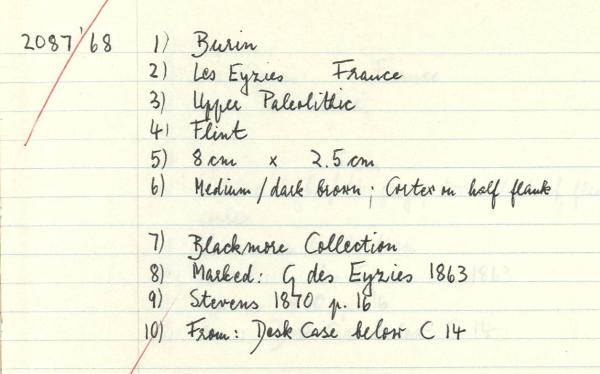 2087'68 1) Burin
2) Les Eyzies France
3) Upper Paleolithic
4) Flint
5) 8cm x 2.5cm
6) Medium/dark brown; Cortex on half flank
7) Blackmore Collection
8) Marked: G des Eyzies 1863
9) Stevens 1870 p. 16
10) From: Desk Case below C 14